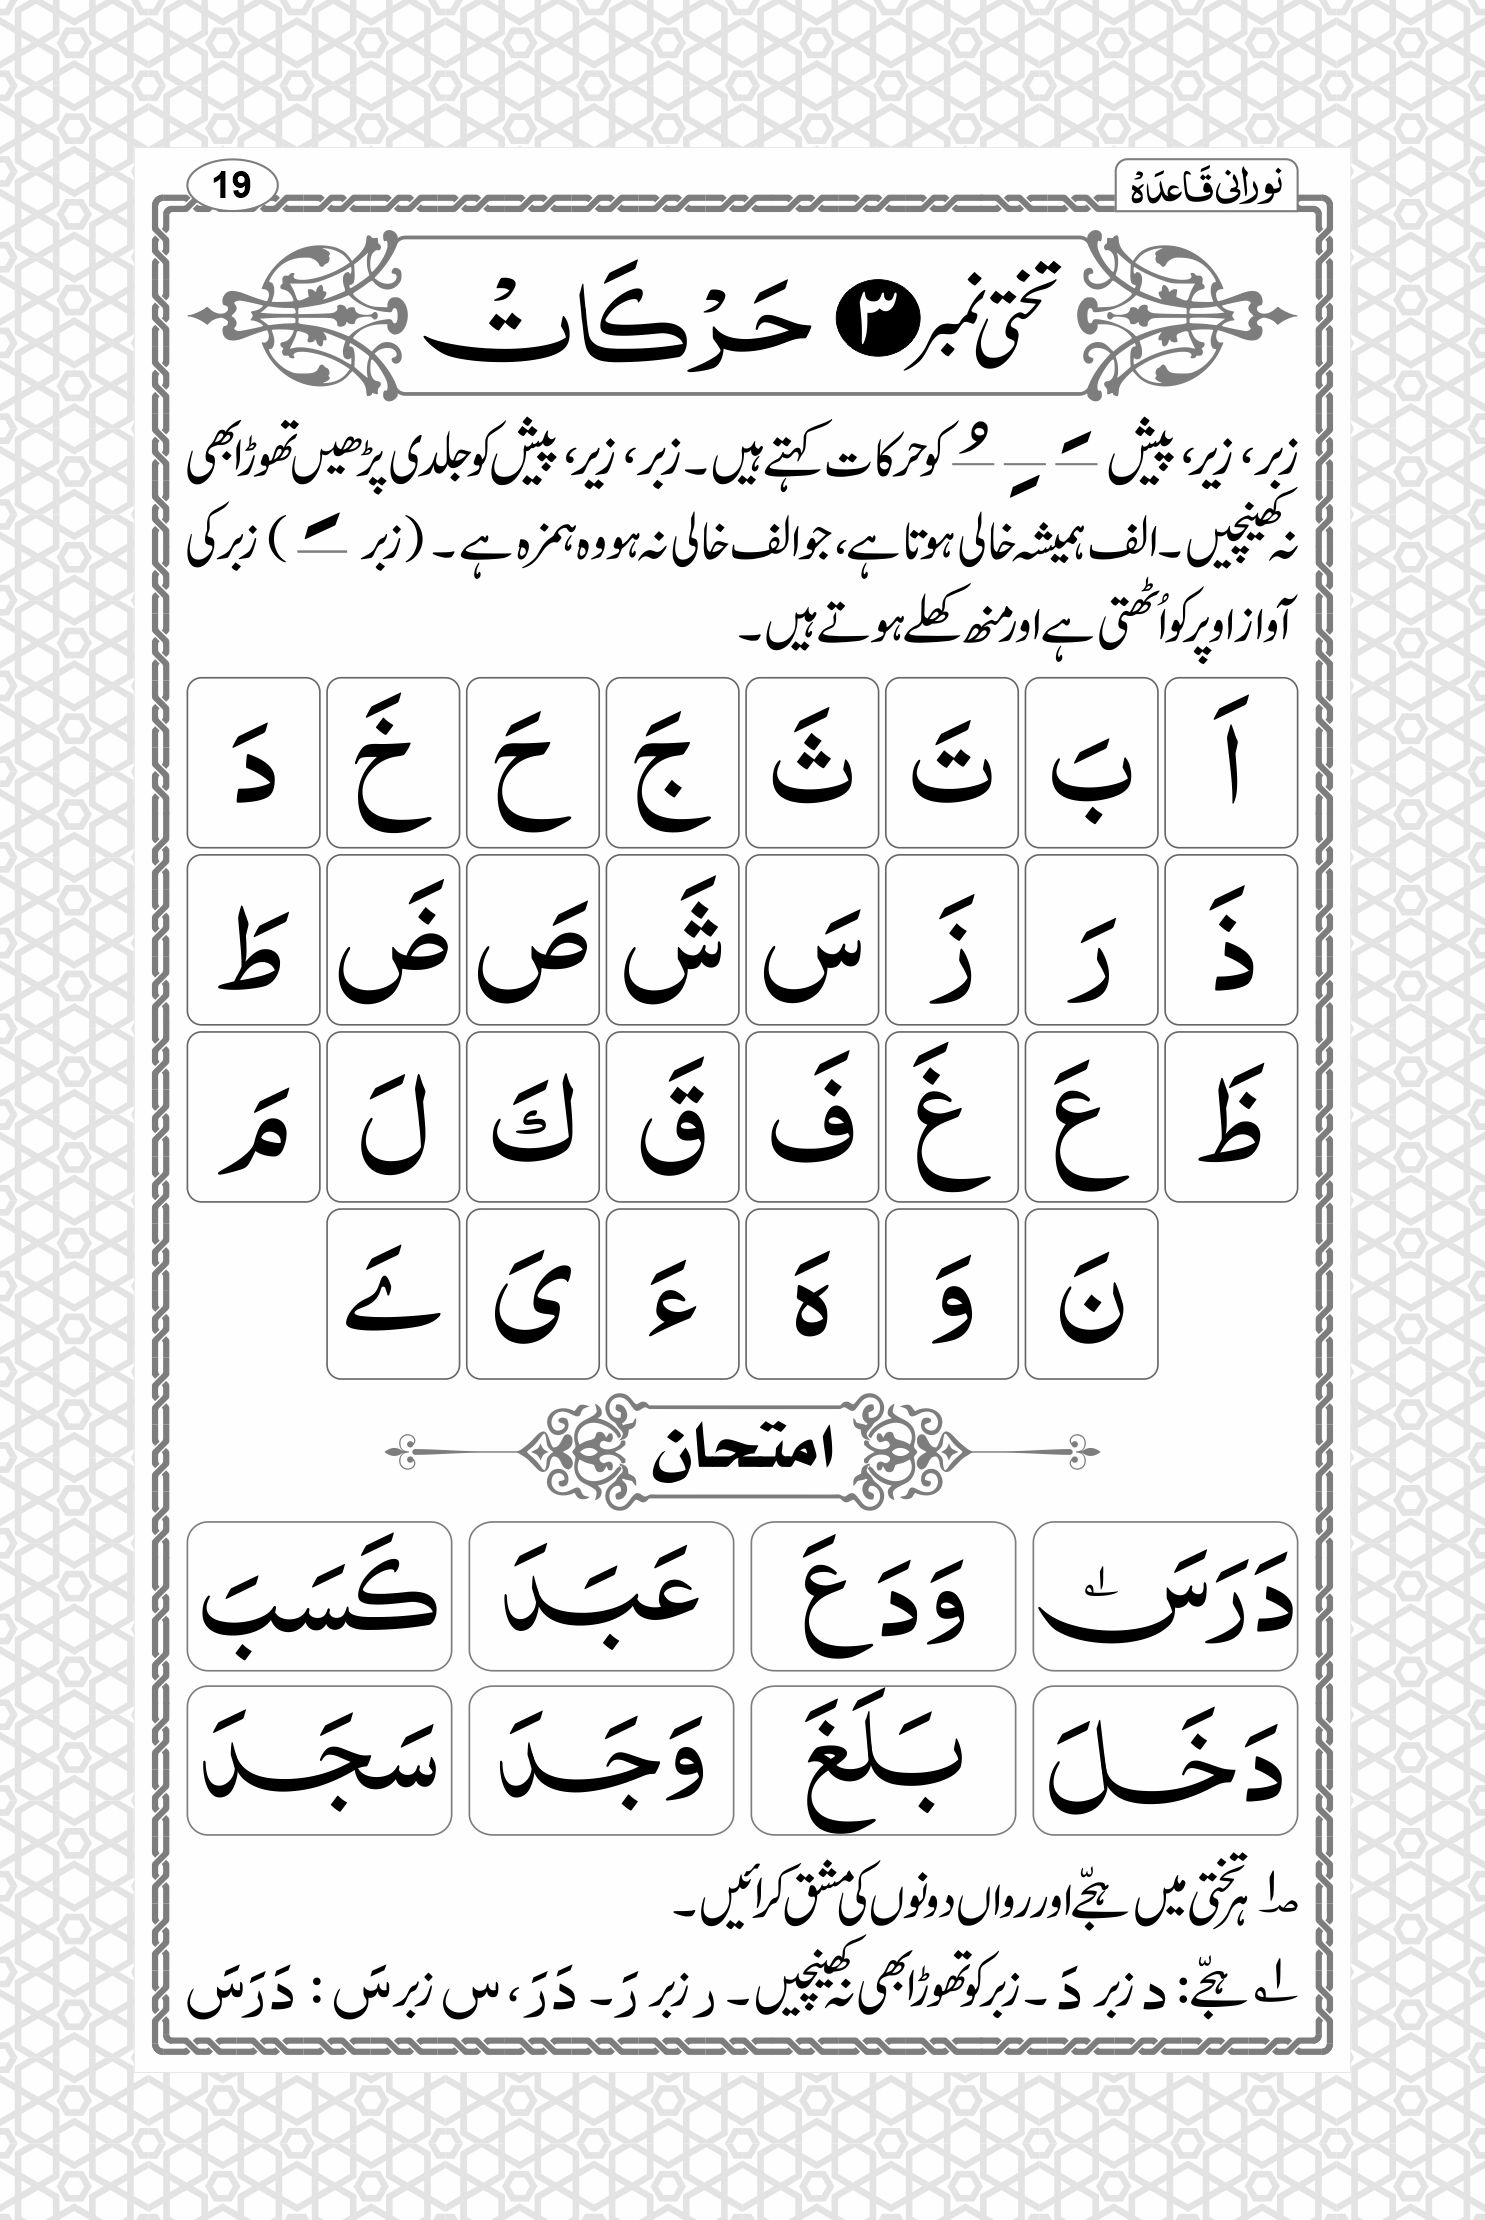 نورانی قَاعدَہْ
19
تختی نمبر ۳ حَرْکَاتْ
زبر، زیر، پیش ـَ ـِ ـُ کو حرکات کہتے ہیں۔ زبر، زیر، پیش کو جلدی پڑھیں تھوڑا بھی
نہ کھینچیں۔ الف ہمیشہ خالی ہوتا ہے، جو الف خالی نہ ہو وہ ہمزہ ہے۔ (زبر ـَ) زبر کی
آواز اوپر کو اُٹھتی ہے اور منھ کھلے ہوتے ہیں۔
اَ بَ تَ ثَ جَ حَ خَ دَ
ذَ رَ زَ سَ شَ صَ ضَ طَ
ظَ عَ غَ فَ قَ كَ لَ مَ
نَ وَ هَ ءَ یَ ےَ
امتحان
دَرَسَ ۲؎ وَدَعَ عَبَدَ کَسَبَ
دَخَلَ بَلَغَ وَجَدَ سَجَدَ
۱؎ ہر تختی میں ہجّے اور رواں دونوں کی مشق کرائیں۔
۲؎ ہجّے: د زبر دَ۔ زبر کو تھوڑا بھی نہ کھینچیں۔ ر زبر رَ۔ دَرَ، س زبر سَ : دَرَسَ